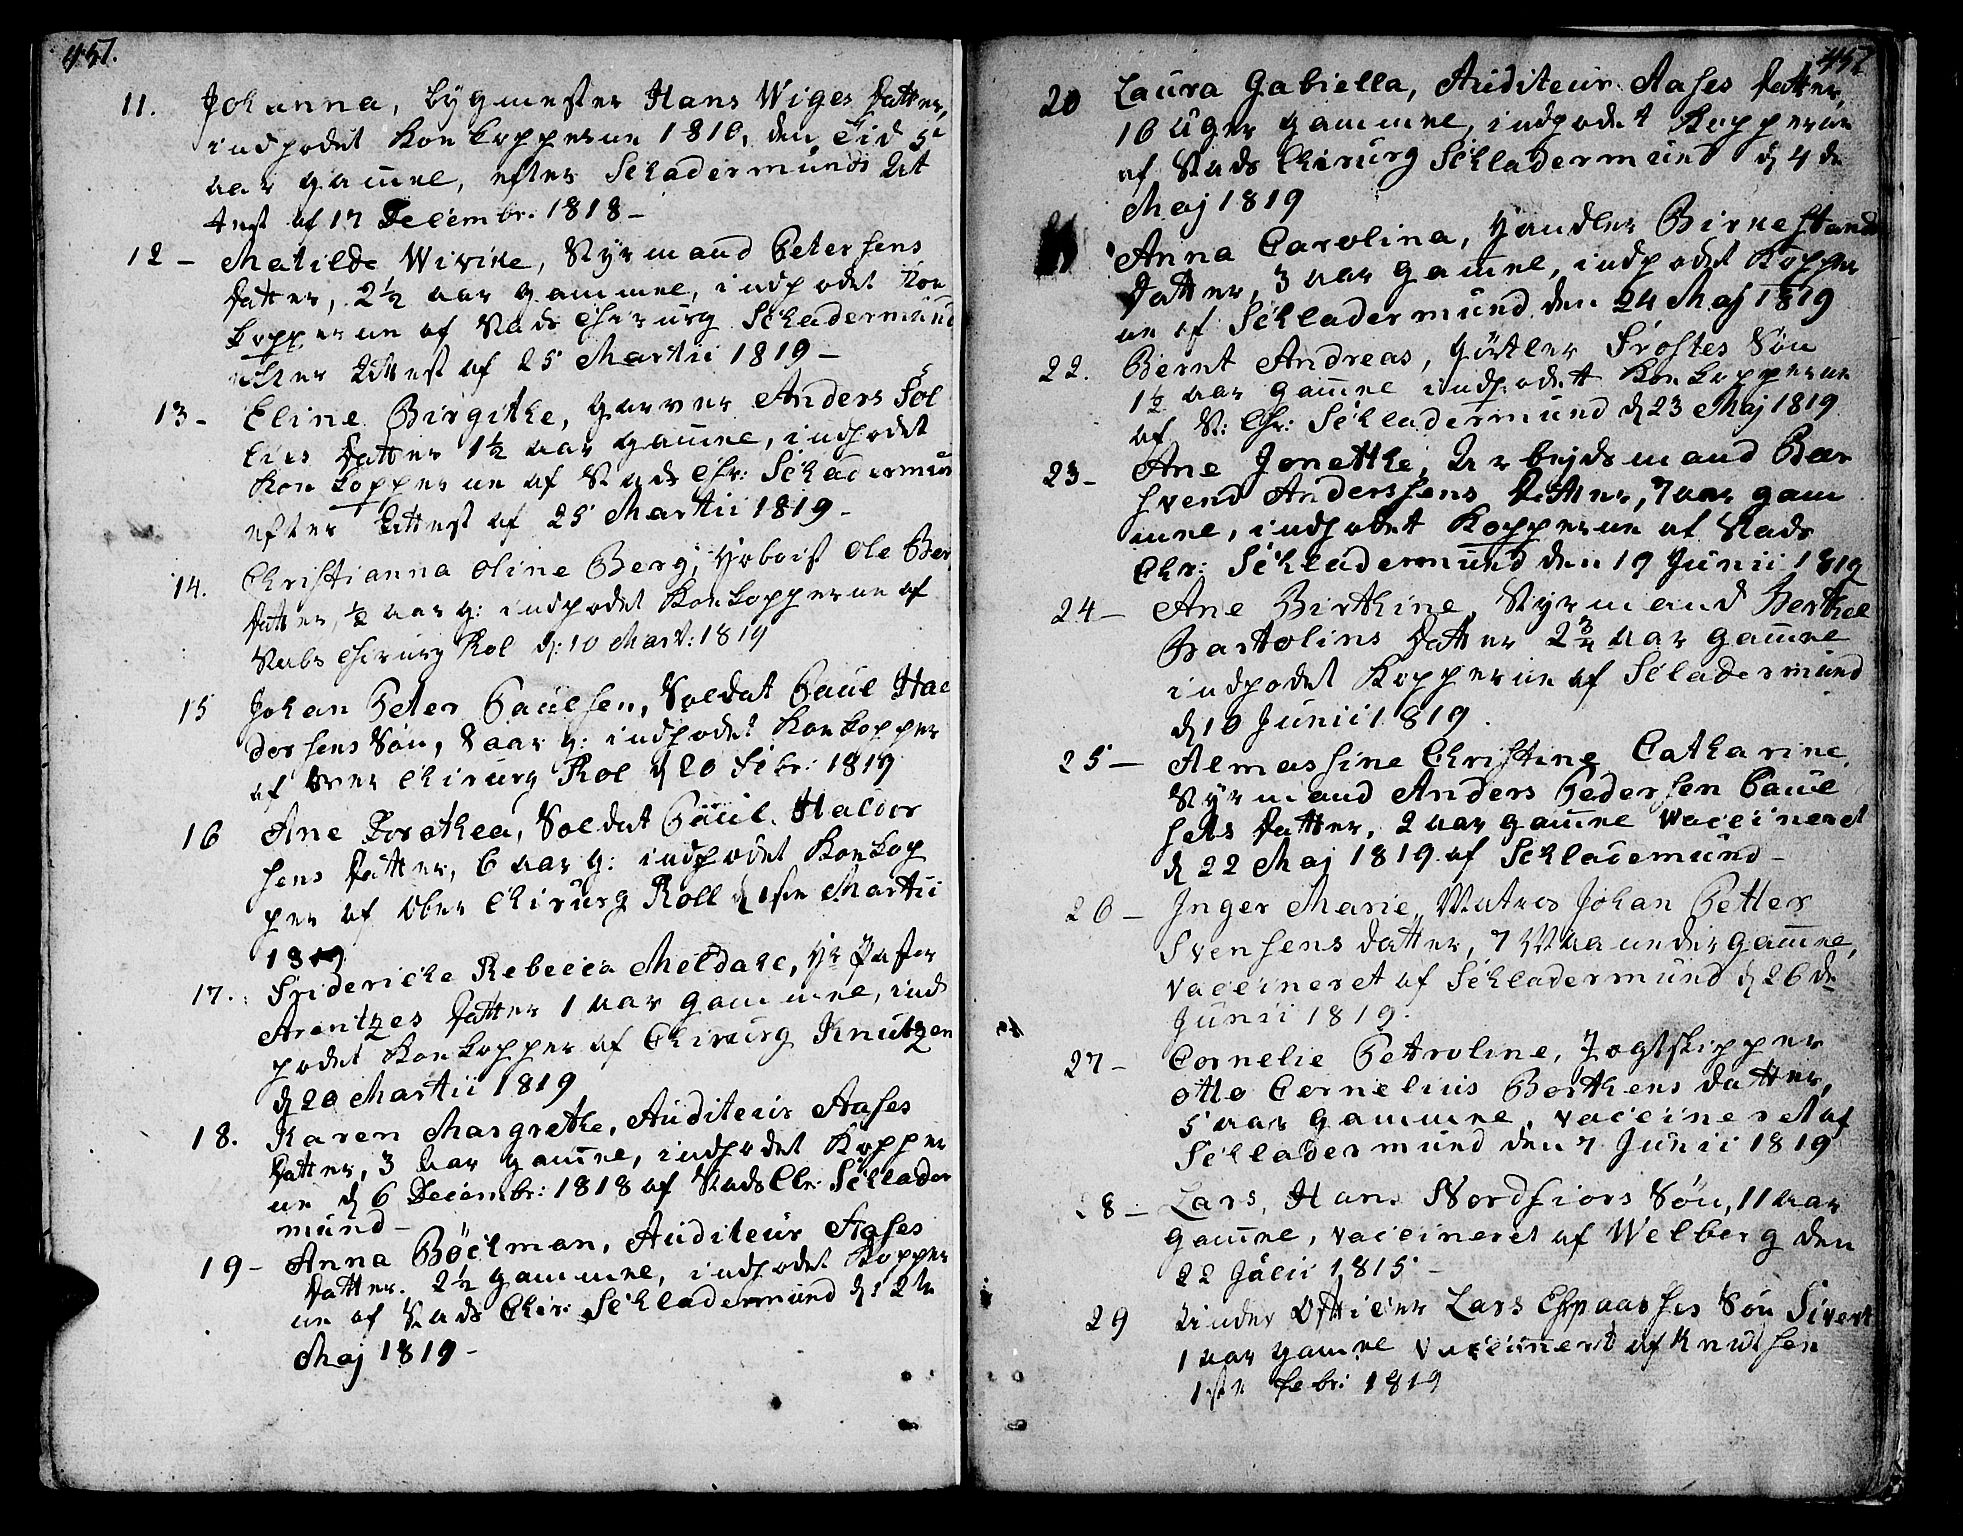 457.
11. Johanna, bygmester Hans Wiges Datter,
indpodet Koekopperne 1810, den Tid 5
aar gamel, efter Schladermunds At
test af 17 Decembr. 1818 –
12 – Matilde Wivike, Styrmand Petersens
Datter, 2½ aar gammel, indpodet Koe
kopperne af Stads Chirurg Schladermund
efter Attest af 25 Martii 1819 –
13 – Eline Birgithe, garver Anders Sol
lies Datter 1½ aar gamel, indpodet
Koekopperne af Stads Chr: Schladermun
efter Attest af 25 Martii 1819 –
14. Christianna Oline Berg, Hoboist Ole Ber
Datter, ½ aar g: indpodet Koekopperne af
Stabs Chirurg Rol d: 10 Mart: 1819
15 Johan Peter Paulsen, Soldat Paul Hal
dorsens Søn, 8 aar g: indpodet Koekopper
af Over Chirurg Rol d 20 Febr: 1819
16 Ane Dorothea, Soldat Paul Haldor
sens Datter, 6 aar g: indpodet Koekop
per af Ober Chirurg Roll d 1ste Martii
1819
17. Frideriche Rebecca Meldahl, Hr Paster
Arentzes Datter 1 aar gammel, ind
podet Koekopper af Chirurg Knutzen
d 20 Martii 1819
18. Karen Margrethe, Auditeur Aases
Datter, 3 Aar gamel, indpodet Kopper
ne d 6 Decembr: 1818 af Stads Chr: Schlader
mund –
19 – Anna Böckman, Auditeur Aases
Datter. 2½ gammel, indpodet Kopper
ne af Stads Chir: Schladermund d 12te
Maj 1819 –
457
20 Laura Gabiella, Auditeur Aases Datter,
16 Uger gammel, indpodet Kopperne
af Stads Chirurg Schladermund d 4de
Maj 1819
Anna Carolina, Handler Birkestrands
Datter, 3 aar gamel, indpodet Kopper
ne af Schladermund den 24 Maj 1819
22. Bernt Andreas, Gørtler Frostes Søn
1½ aar gamel indpodett Koekopperne
af St: Chr: Schladermund d 23 Maj 1819
23 – Ane Jonethe, Arbejdsmand Baar
svend Anderssens Datter, 7 aar gam
mel, indpodet Kopperne af Stads
Chr: Schladermund den 19 Junii 1819
24 – Ane Birthine, Styrmand Berthel
Bartolins Datter 2¾ aar gamel
indpodet Kopperne af Scladermund
d 10 Junii 1819.
25 – Almassine Christine Catharine,
Styrmand Anders Pedersen Paul
sens Datter, 2 aar gamel vaccineret
d 22 Maj 1819 af Schlademund –
26 – Inger Marie, Matros Johan Petter
Svensens Datter, 7 Maaneder gamel,
vaccineret af Schladermund d 26de
Junii 1819.
27 – Cornelie Petroline, Jagtskipper
Otto Cornelius Borthens Datter,
5 aar gammel, vaccineret af
Schladermund den 7 Junii 1819
28 – Lars, Hans Nordfiors Søn, 11 aar
gamel, vaccineret af Welberg den
22 Julii 1815 –
29 Under Officer Lars Espaasses Søn Sivert
1 aar gamel vaccineret af Knudsen
1ste Febr: 1819